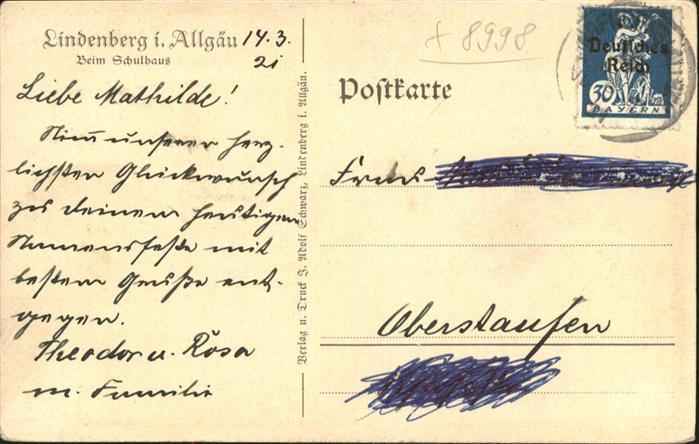 Lindenberg i. Allgäu 14.3.
Beim Schulhaus 21
Liebe Mathilde!
Nimm unseren herz-
lichsten Glückwunsch
zu deinem heutigen
Namensfeste mit
besten Grüße ent-
gegen.
Theodor u. Rosa
m. Familie
Verlag u. Druck J. Adolf Schwarz, Lindenberg i. Allgäu.
+ 8998
Postkarte
Deutsches
Reich
30
BAYERN
Frau
Oberstaufen